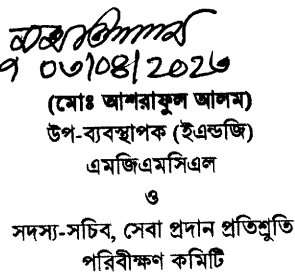 ০৩/০৪/২০২৩
(মোঃ আশরাফুল আলম)
উপ-ব্যবস্থাপক (ইএন্ডজি)
এমজিএমসিএল
ও
সদস্য-সচিব, সেবা প্রদান প্রতিশ্রুতি
পরিবীক্ষণ কমিটি